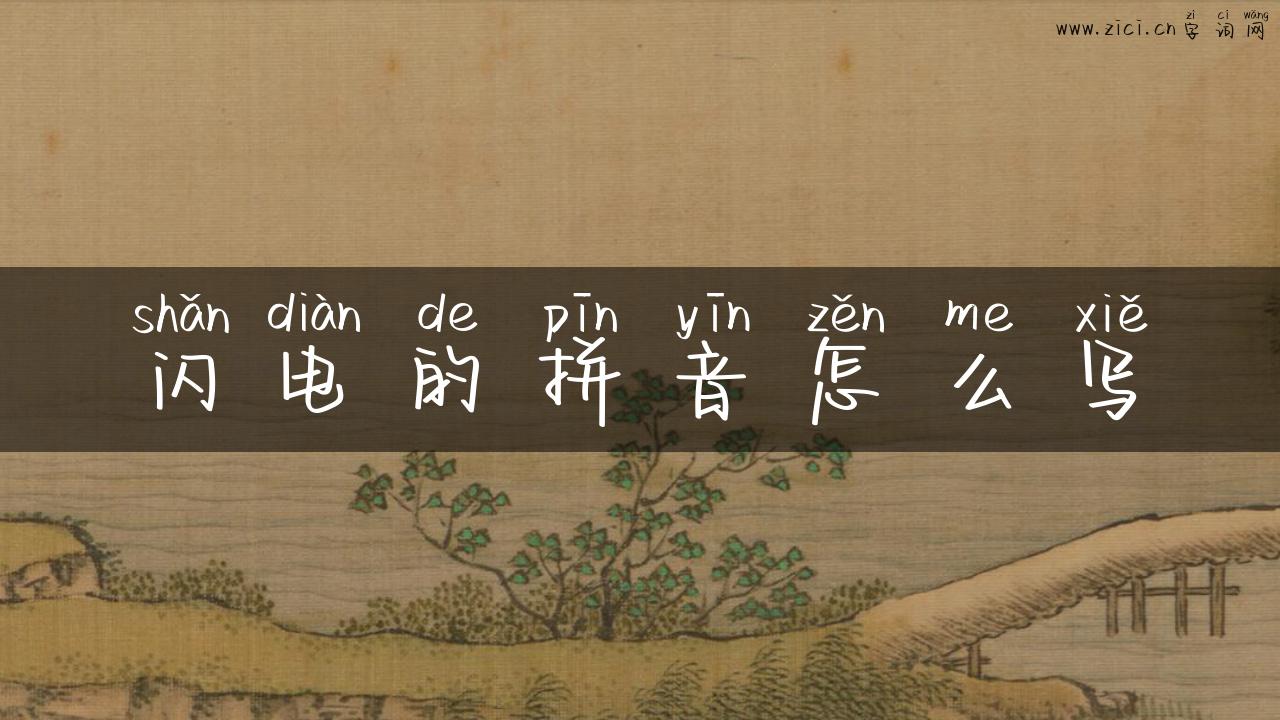 zì cí wǎng
www.zici.cn 字词网
shǎn diàn de pīn yīn zěn me xiě
闪电的拼音怎么写